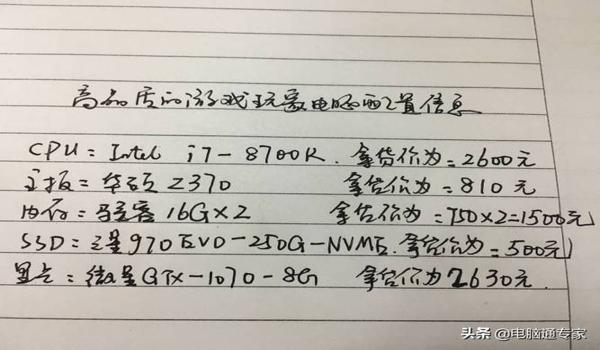 高品质的游戏玩家电脑配置信息
CPU：Intel i7-8700K. 拿货价为：2600元
主板：华硕Z370 拿货价为：810元
内存：骇客16G×2 拿货价为：750×2=1500元
SSD：三星970EVO-250G-NVME. 拿货价为：500元
显卡：微星GTX-1070-8G 拿货价为2630元.
头条 @电脑通专家